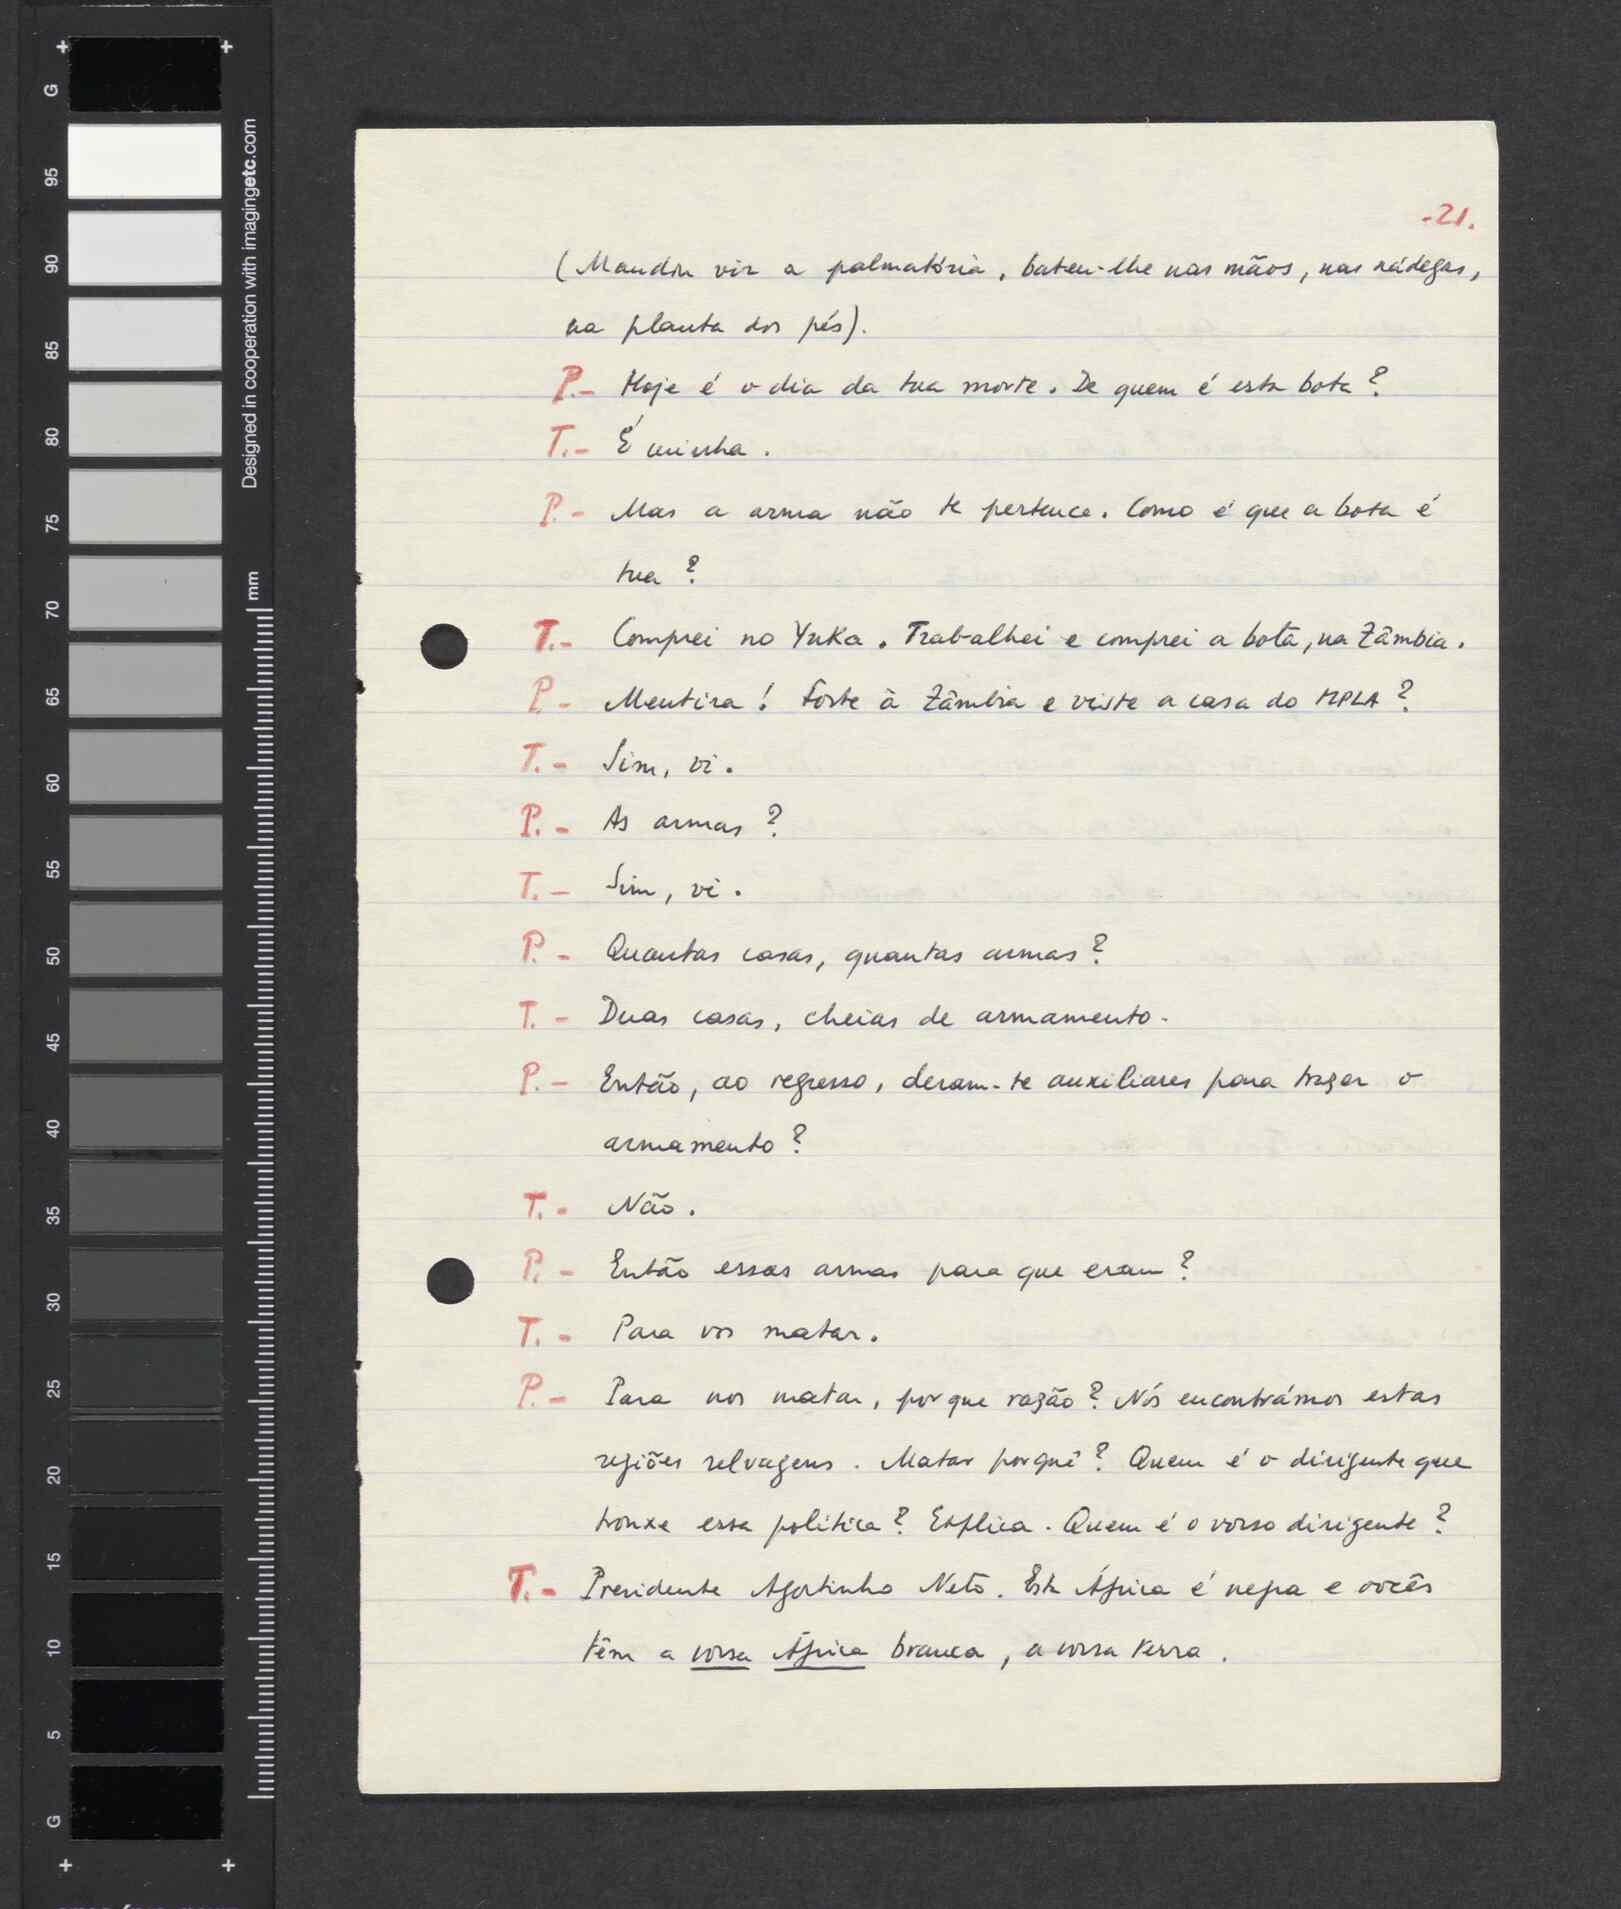 -21.
(Mandou vir a palmatória, bateu-lhe nas mãos, nas nádegas,
na planta dos pés).
P.- Hoje é o dia da tua morte. De quem é esta bota?
T.- É minha.
P.- Mas a arma não te pertence. Como é que a bota é
tua?
T.- Comprei no Yuka. Trabalhei e comprei a bota, na Zâmbia.
P.- Mentira! Foste à Zâmbia e viste a casa do MPLA?
T.- Sim, vi.
P.- As armas?
T.- Sim, vi.
P.- Quantas casas, quantas armas?
T.- Duas casas, cheias de armamento.
P.- Então, ao regresso, deram-te auxiliares para trazer o
armamento?
T.- Não.
P.- Então essas armas para que eram?
T.- Para vos matar.
P.- Para nos matar, por que razão? Nós encontrámos estas
regiões selvagens. Matar porquê? Quem é o dirigente que
trouxe essa política? Explica. Quem é o vosso dirigente?
T.- Presidente Agostinho Neto. Esta África é negra e vocês
têm a vossa África branca, a vossa terra.
G
95
90
85
80
75
70
65
60
55
50
45
40
35
30
25
20
15
10
5
G
Designed in cooperation with imagingetc.com
mm